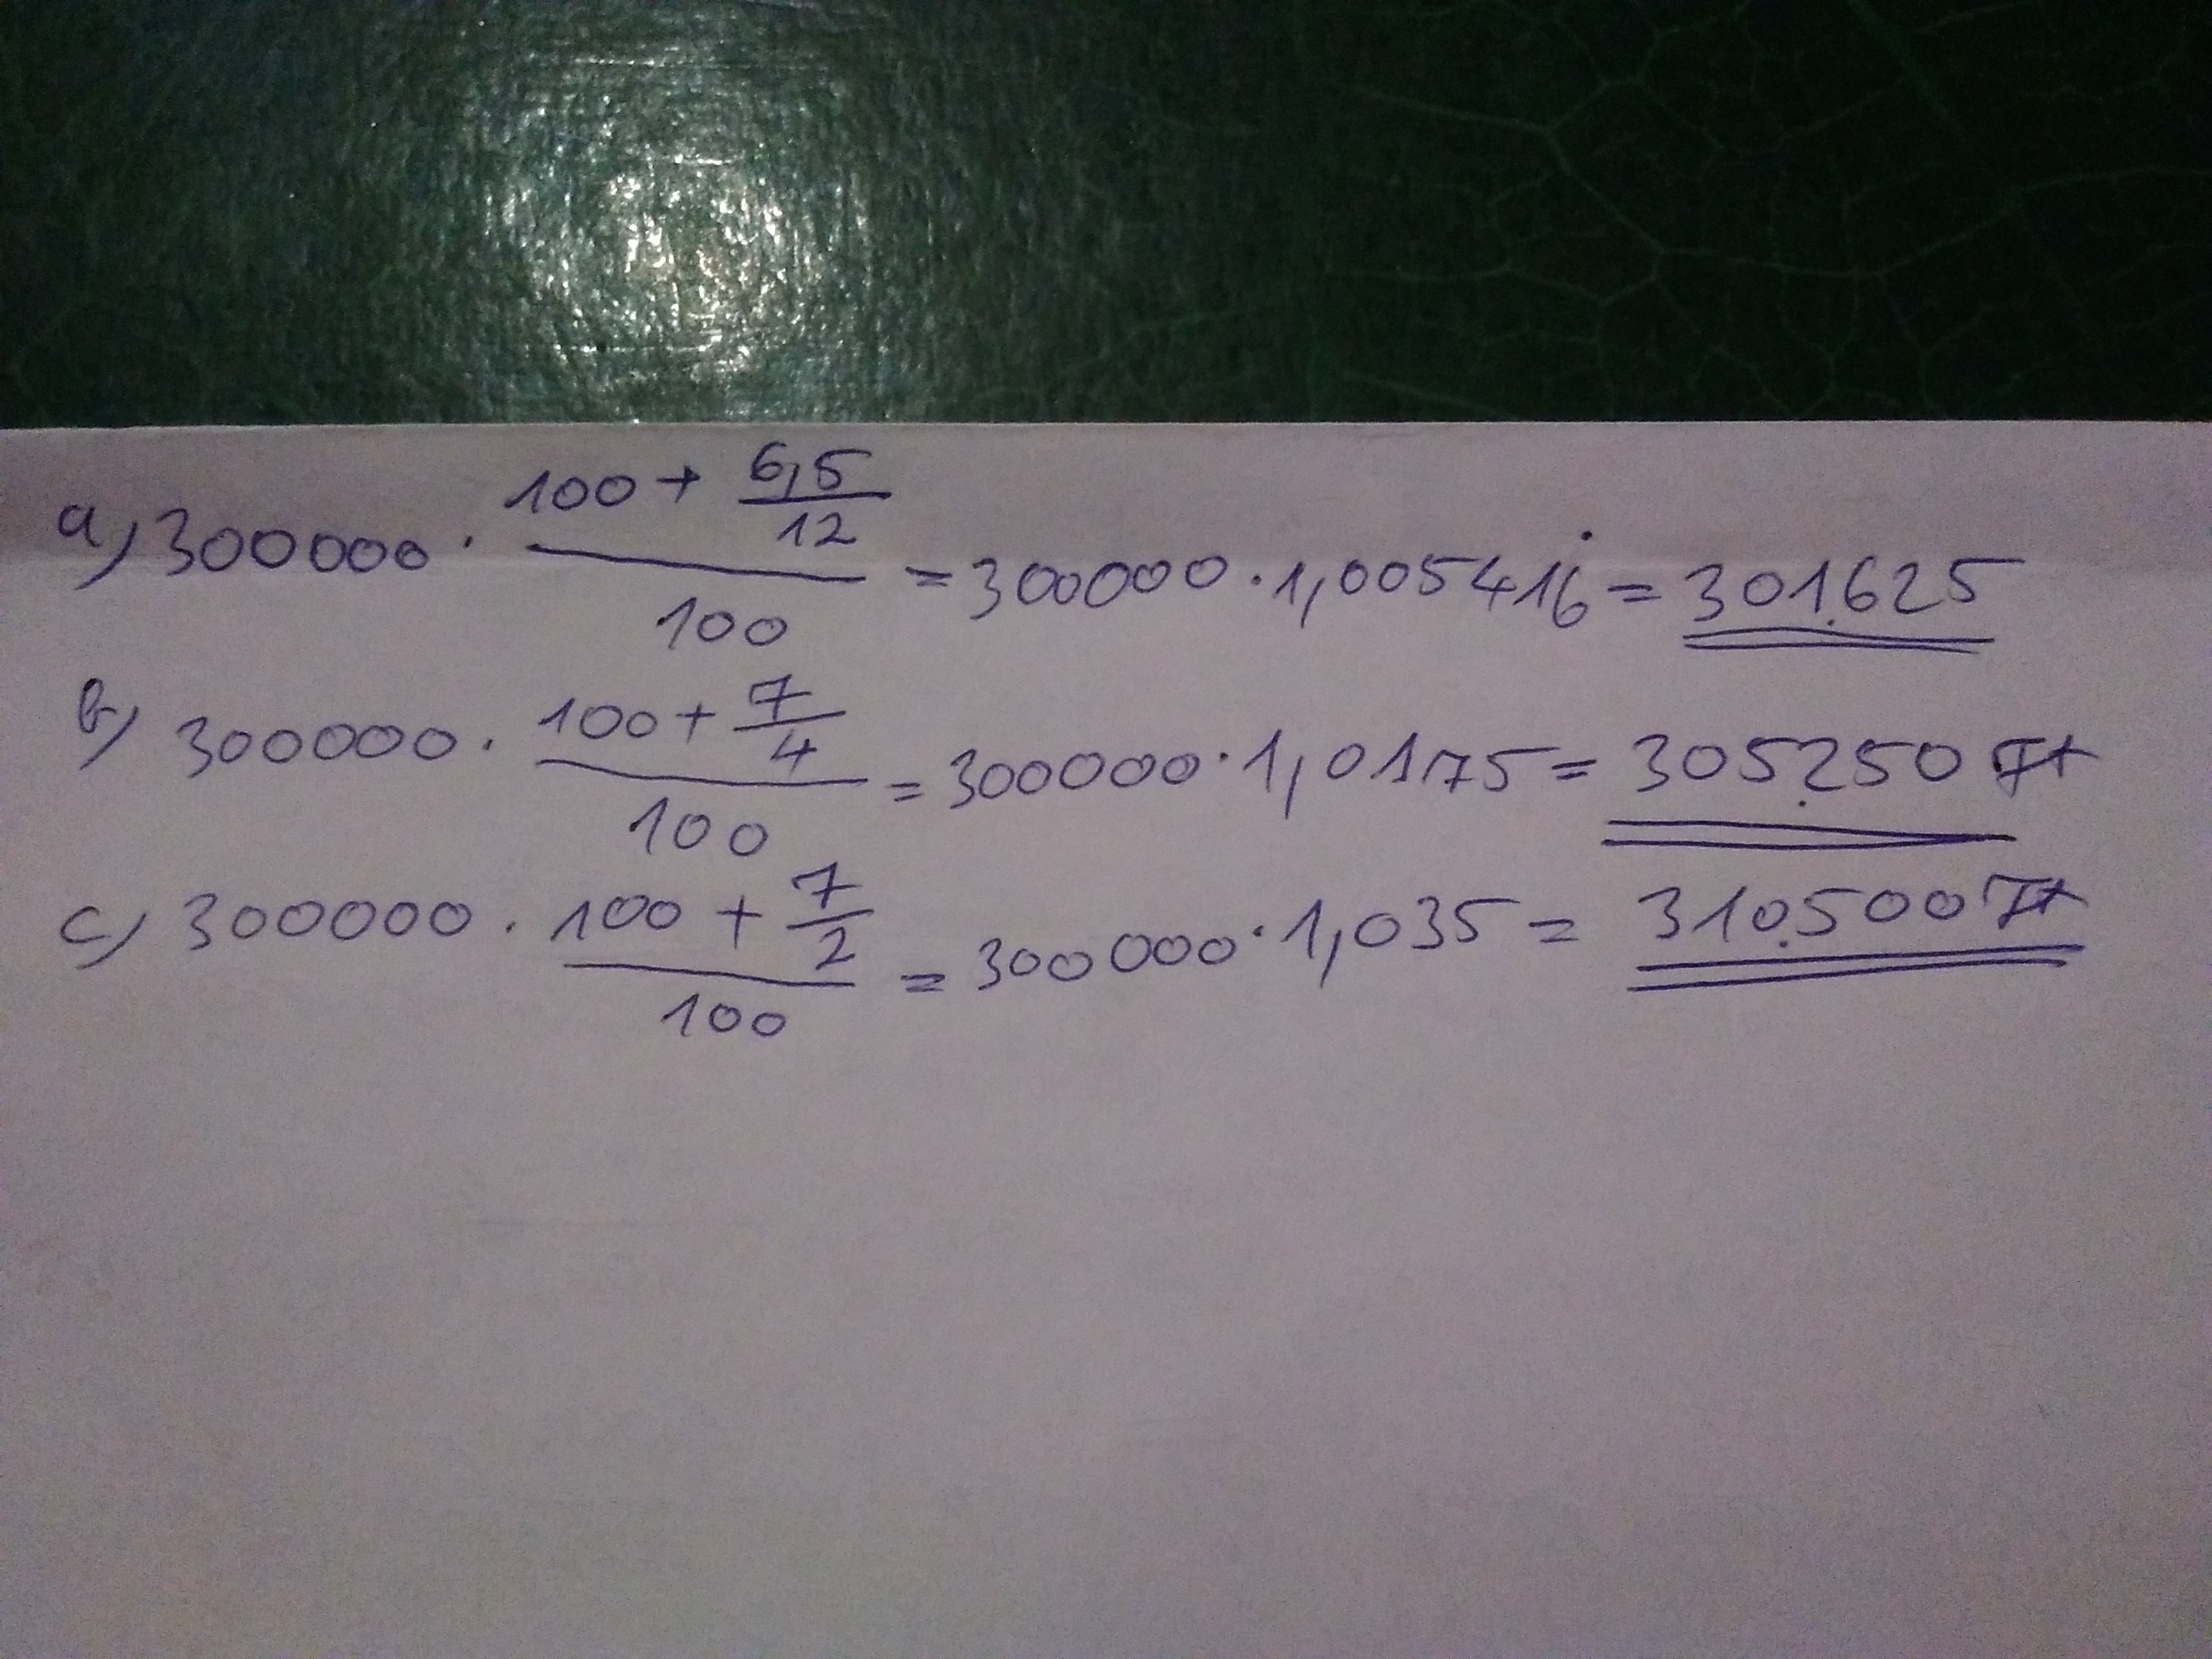 a) 300000 · (100 + 6,5/12)/100 = 300000 · 1,005416̇ = 301.625
b) 300000 · (100 + 7/4)/100 = 300000 · 1,0175 = 305.250 Ft
c) 300000 · (100 + 7/2)/100 = 300000 · 1,035 = 310.500 Ft